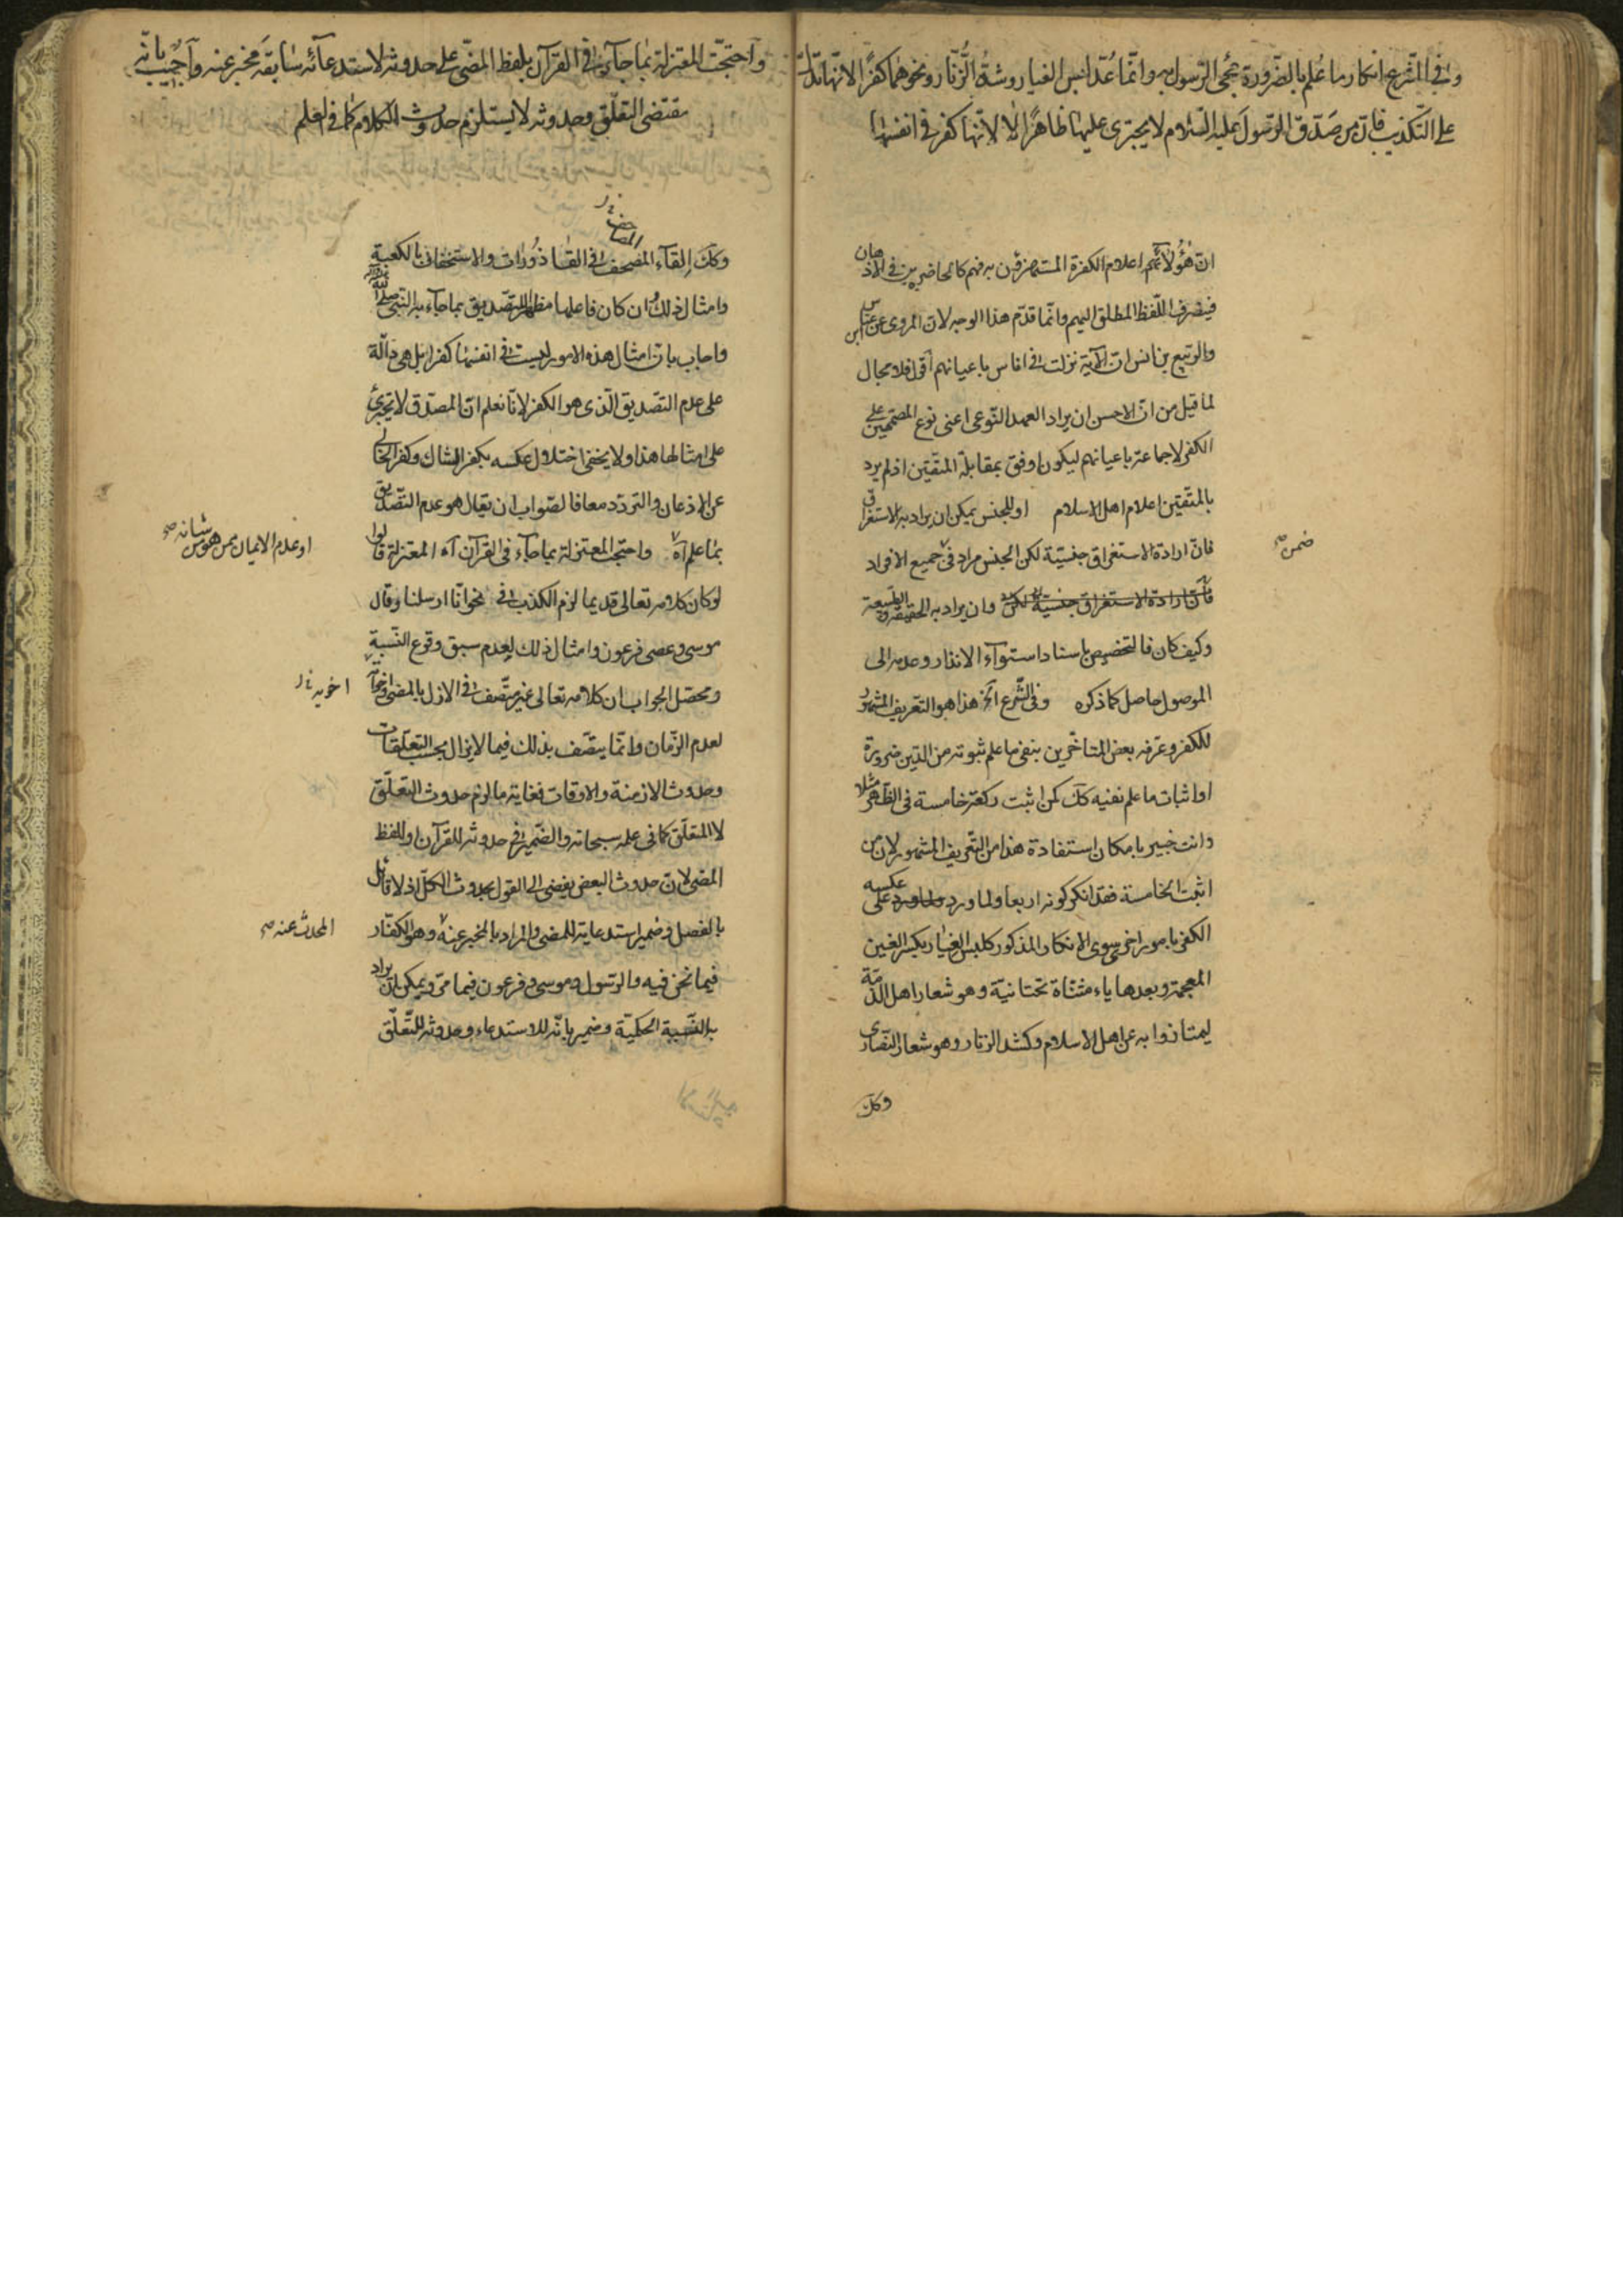 وفي الشرع انكار ما علم بالضرورة مجئ الرسول به وانما عدّ لبس الغيار وشدّ الزنار ونحوهما كفرا لانها تدل
على التكذيب فان من صدّق الرسول عليه السلام لا يجترى عليها ظاهرا لا لانها كفر في انفسها
ان هؤلاء هم اعلام الكفرة المستهزؤن به فهم كالحاضرين في الاذهان
فينصرف اللفظ المطلق اليهم وانما قدّم هذا الوجه لان المروى عن ابن عباس
والربيع بن انس ان الآية نزلت في اناس باعيانهم اقول فلا مجال
لما قيل من ان الاحسن ان يراد العهد النوعى اعنى نوع المصممين على
الكفر لا جماعة باعيانهم ليكون اوفق بمقابلة المتقين اذ لم يرد
بالمتقين اعلام اهل الاسلام او للجنس يمكن ان يراد به الاستغراق
فان ارادة الاستغراق جنسية لكن الجنس مراد في جميع الافراد
ضمن صح
فان ارادة الاستغراق جنسية لكن وان يراد به الحقيقة والطبيعة
وكيف كان فالتخصيص باسناد استواء الانذار وعدمه الى
الموصول حاصل كما ذكره وفى الشرع الخ هذا هو التعريف المشهور
للكفر وعرفه بعض المتاخرين بنفى ما علم ثبوته من الدين ضرورة
او اثبات ما علم نفيه كك كمن اثبت ركعة خامسة في الظهر مثلا
وانت خبير بامكان استفادة هذا من التعريف المشهور لان من
اثبت الخامسة فقد انكر كونه اربعا ولما ورد على عكسه
الكفر بامور اخرى سوى الانكار المذكور كلبس الغيار بكسر الغين
المعجمة وبعدها ياء مثناة تحتانية وهو شعار اهل الذمة
ليمتازوا به عن اهل الاسلام وكشد الزنار وهو شعار النصارى
وكك
واحتجّت المعتزلة بما جاء في القرآن بلفظ المضى على حدوثه لاستدعائه سابقة مخبر عنه واجيب بانه
مقتضى التعلق وحدوثه لا يستلزم حدوث الكلام كما في العلم
وكك القاء المصحف في القاذورات والاستخفاف بالكعبة
وامثال ذلك وان كان فاعلها مظهرا للتصديق بما جاء به النبى صلى الله عليه وآله
واجاب بان امثال هذه الامور ليست في انفسها كفرا بل هى دالة
على عدم التصديق الذى هو الكفر لانا نعلم ان المصدق لا يجترئ
على امثالها هذا ولا يخفى اختلال عكسه بكفر الشاك وكفر الخالى
عن الاذعان والتردد معا فالصواب ان يقال هو عدم التصديق
او عدم الايمان ممن هو من شانه صح
بما علم آه واحتجت المعتزلة بما جاء في القرآن آه المعتزلة قالوا
لو كان كلامه تعالى قديما لزم الكذب في نحو انا ارسلنا وقال
موسى وعصى فرعون وامثال ذلك لعدم سبق وقوع النسبة
ومحصل الجواب ان كلامه تعالى غير متصف في الازل بالمضى
لعدم الزمان وانما يتصف بذلك فيما لا يزال بحسب التعلقات
وحدوث الازمنة والاوقات فغاية ما لزم حدوث التعلق
لا المتعلق كما في علمه سبحانه والضمير في حدوثه للقرآن او للفظ
المضى لان حدوث البعض يفضى الى القول بحدوث الكل اذ لا قائل
بالفصل وضمير استدعايه للمضى والمراد بالمخبر عنه وهو الكفار
المحدث عنه صح
فيما نحن فيه والرسول وموسى وفرعون فيما مر ويمكن ان يراد
به النسبة الحكمية وضمير بانه للاستدعاء وحدوثه للتعلق